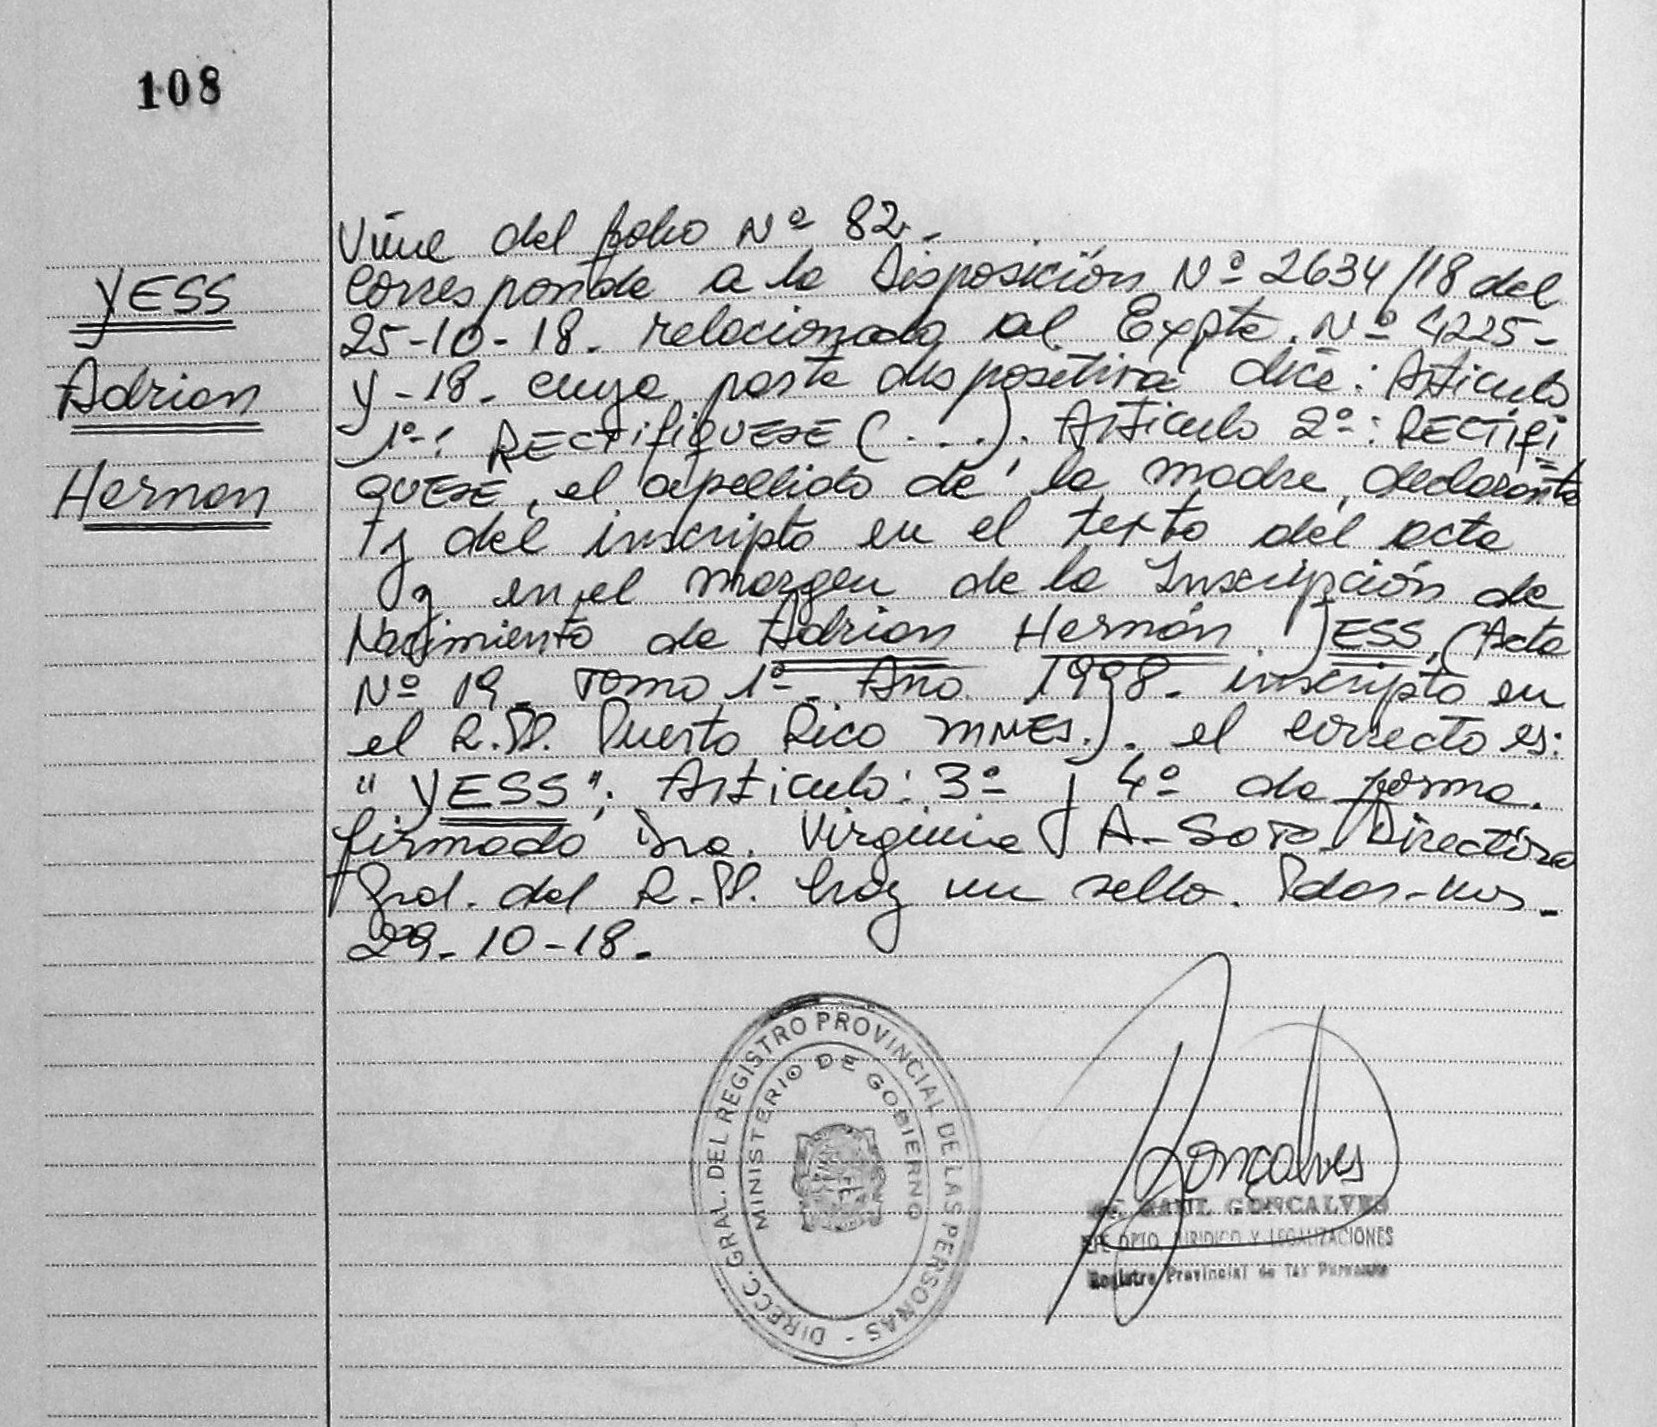 108
YESS
Adrian
Hernan
Viene del folio Nº 82.-
Corresponde a la Disposición Nº 2634/18 del
25-10-18. relacionada al Expte. Nº 4225-
Y-18. cuya parte dispositiva dice: Articulo
1º: RECTIFIQUESE (...). Articulo 2º: RECTIFI
QUESE, el apellido de la madre, declarante
y del inscripto en el texto del acta
y en el margen de la Inscripción de
Nacimiento de Adrian Hernán JESS, (Acta
Nº 19. Tomo 1º. Año 1998. inscripto en
el R.P. Puerto Rico MNES.). el correcto es:
"YESS"; Articulo: 3º y 4º de forma.
firmado Dra. Virginia A. SOTO. Directora
Gral. del R.P. hay un sello. Pdas-mns.
29-10-18.
DIRECC. GRAL. DEL REGISTRO PROVINCIAL DE LAS PERSONAS -
MINISTERIO DE GOBIERNO
Goncalves
RAUL GONCALVES
JEFE DPTO. JURIDICO Y LEGALIZACIONES
Registro Provincial de las Personas